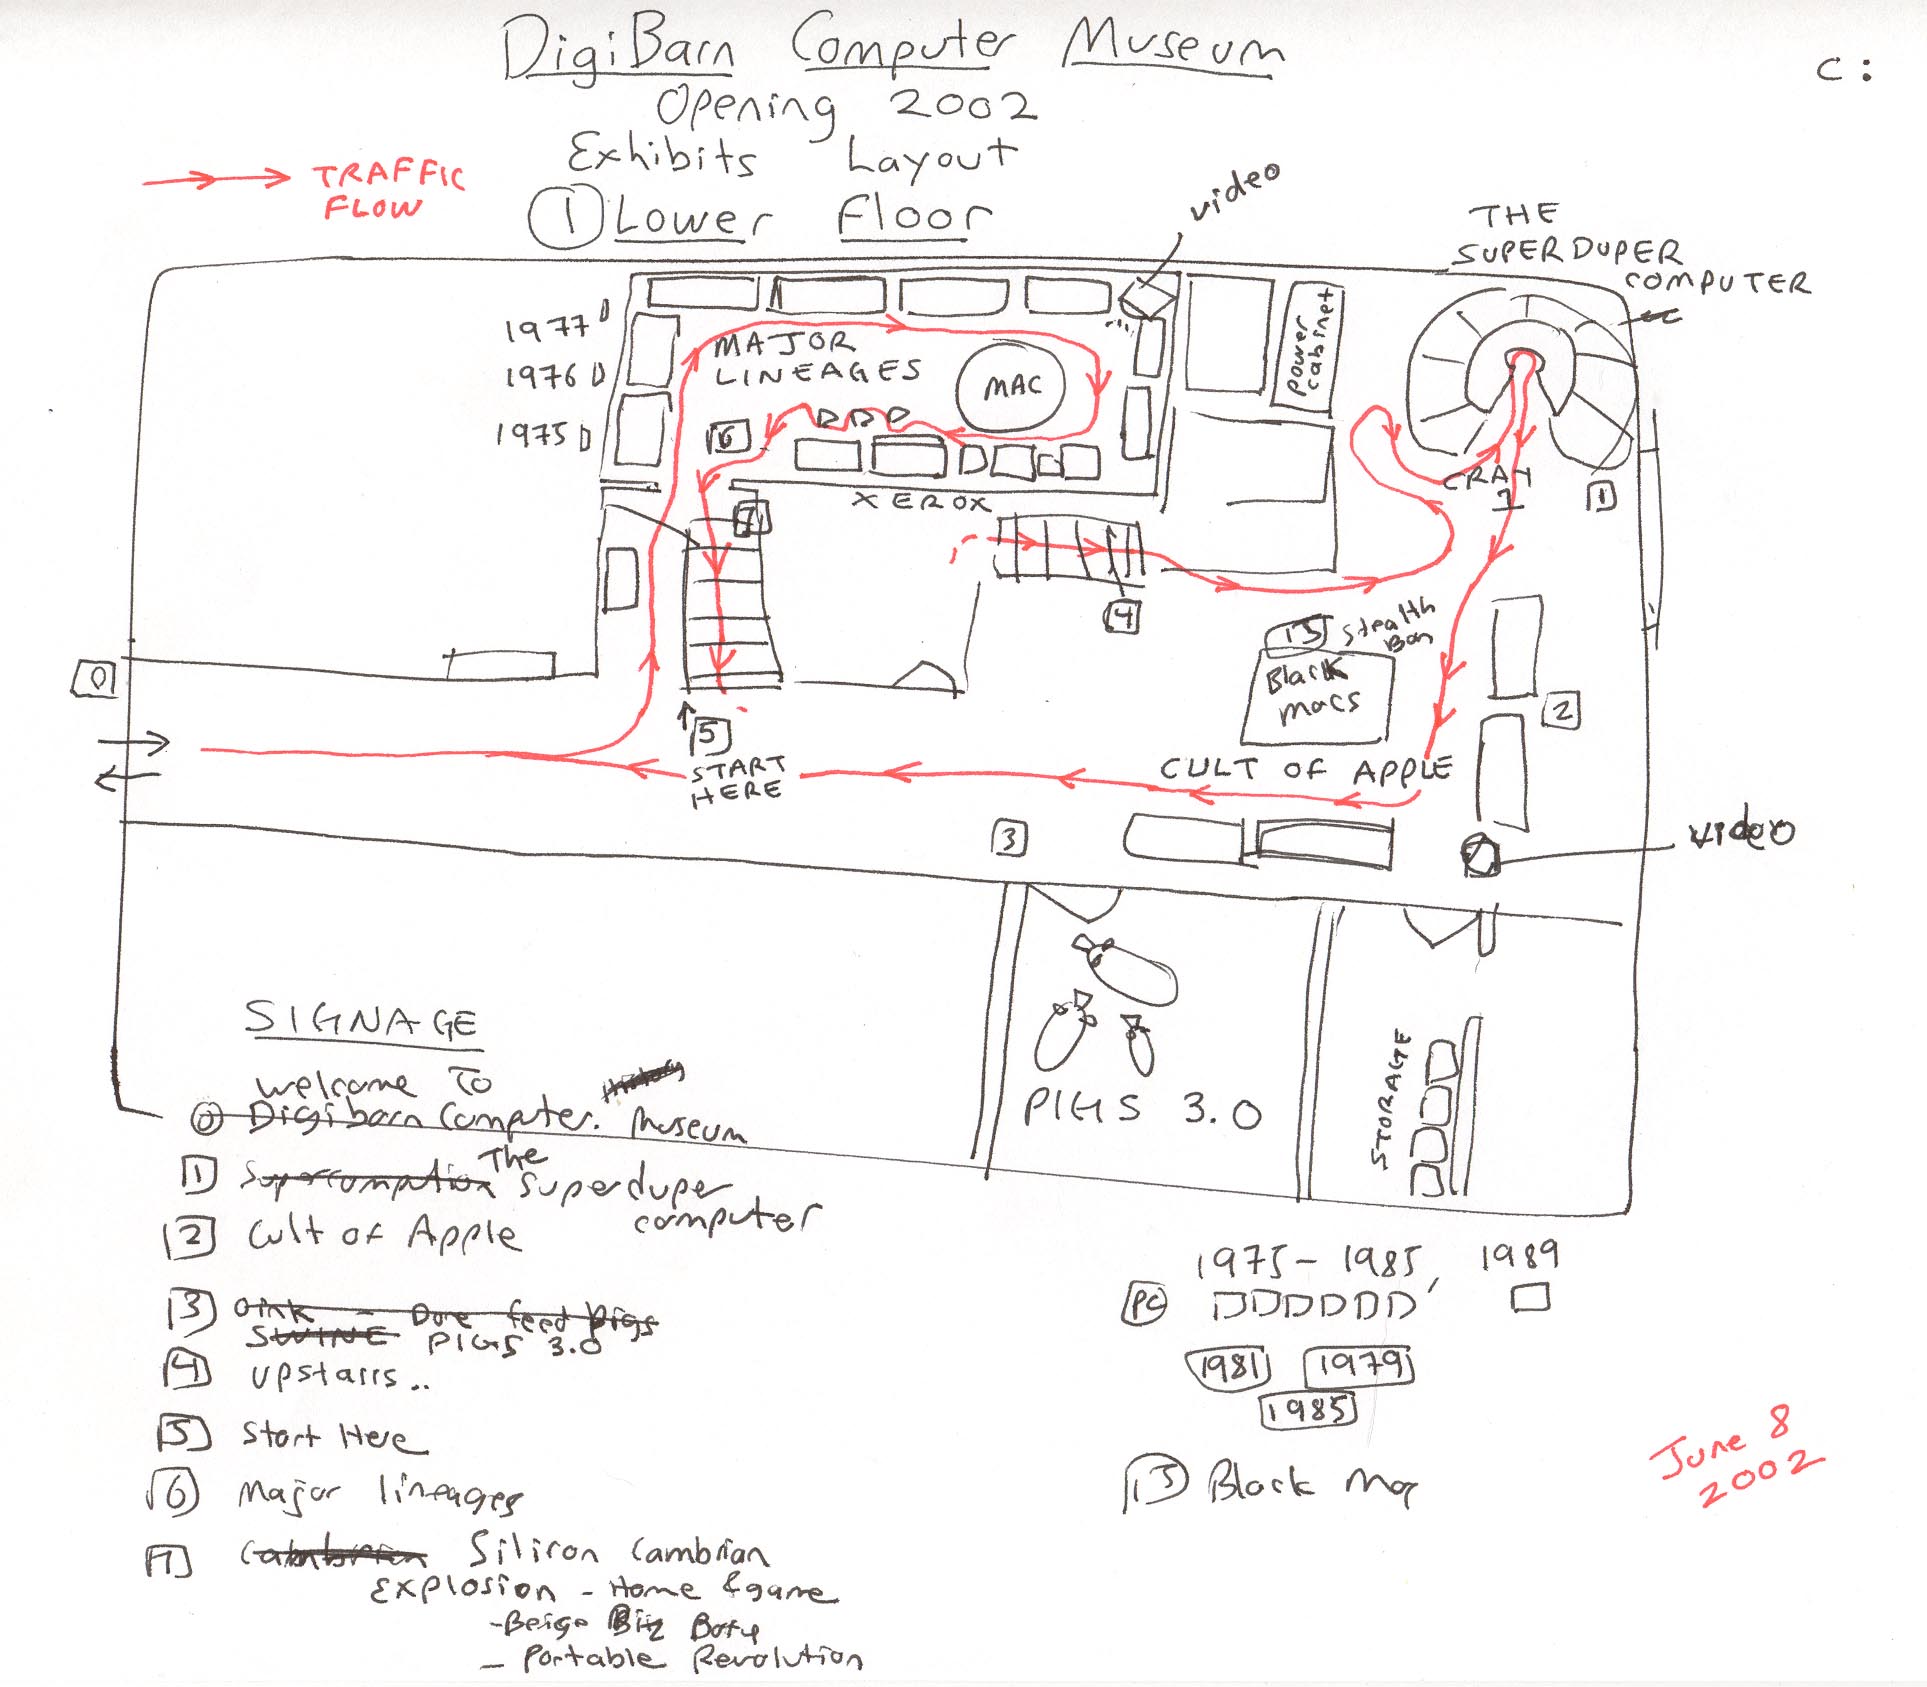 DigiBarn Computer Museum
C:
Opening 2002
Exhibits Layout
TRAFFIC
FLOW
1 Lower Floor
video
THE
SUPERDUPER
COMPUTER
1977
1976
1975
MAJOR
LINEAGES
MAC
Power
Cabinet
6
XEROX
7
CRAY
1
1
4
13 Stealth
Black
Macs
0
2
5
START
HERE
CULT OF APPLE
3
video
SIGNAGE
Welcome To
0 Digibarn Computer. Museum
1 The Superduper
computer
2 Cult of Apple
3 Oink - Done feed Pigs
SWINE PIGS 3.0
4 Upstairs..
5 Start Here
6 Major lineages
7 Cambrian Silicon Cambrian
Explosion - Home & game
- Beige Biz
- Portable Revolution
PIGS 3.0
STORAGE
1975 - 1985, 1989
PC
1981 1979
1985
13 Black
June 8
2002